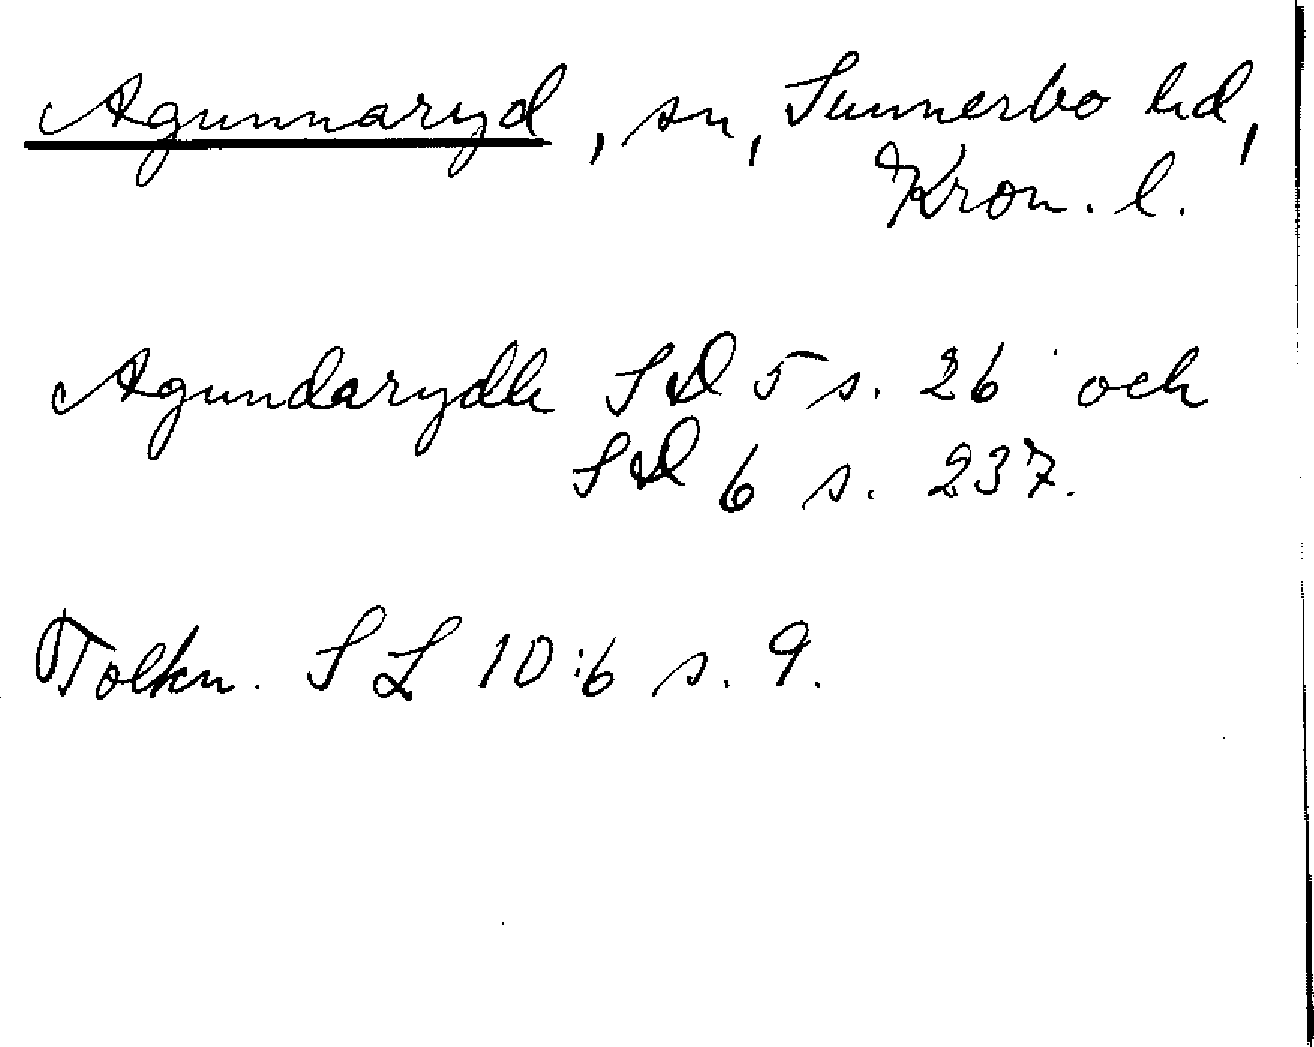 Agunnaryd, sn, Sunnerbo hd,
Kron. l.
Agundarydh SD 5 s. 26 och
SD 6 s. 237.
Tolkn. SL 10:6 s. 9.